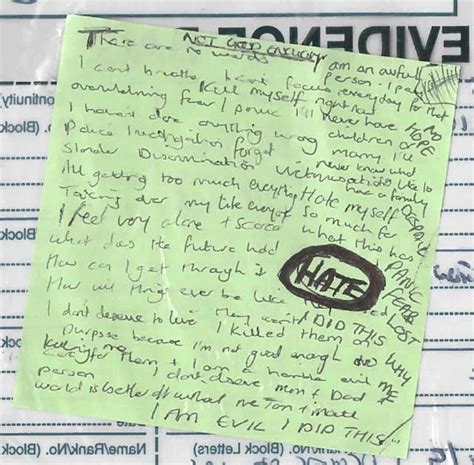 EVIDENCE
NOT GOOD ENOUGH
There are no words
I am an awful person - I pay
I can't breathe I can't focus everyday for that
overwhelming fear I panic
Kill myself right now
I'll never have
NO HOPE
children or marry
I haven't done anything wrong
I'll never know what
Police investigation forget
Slander Discrimination
like to have a family
All getting too much everything
Hate myself so much for
Taking over my life everyday
what this has
DESPAIR
PANIC
FEAR
LOST
I feel very alone + scared
What does the future hold
How can I get through it
HATE
How will things ever be like
I DID THIS
WHY ME
I don't deserve to live
I killed them on
purpose because I'm not good enough to
care for them + I am a horrible evil
person
I don't deserve Mum + Dad +
world is better off without me Tom + Matt
I AM EVIL I DID THIS
Continuity
No. (Block
(Block
(Block
Name/Rank/No. (Block Letters)
Name/Rank/No. (Block